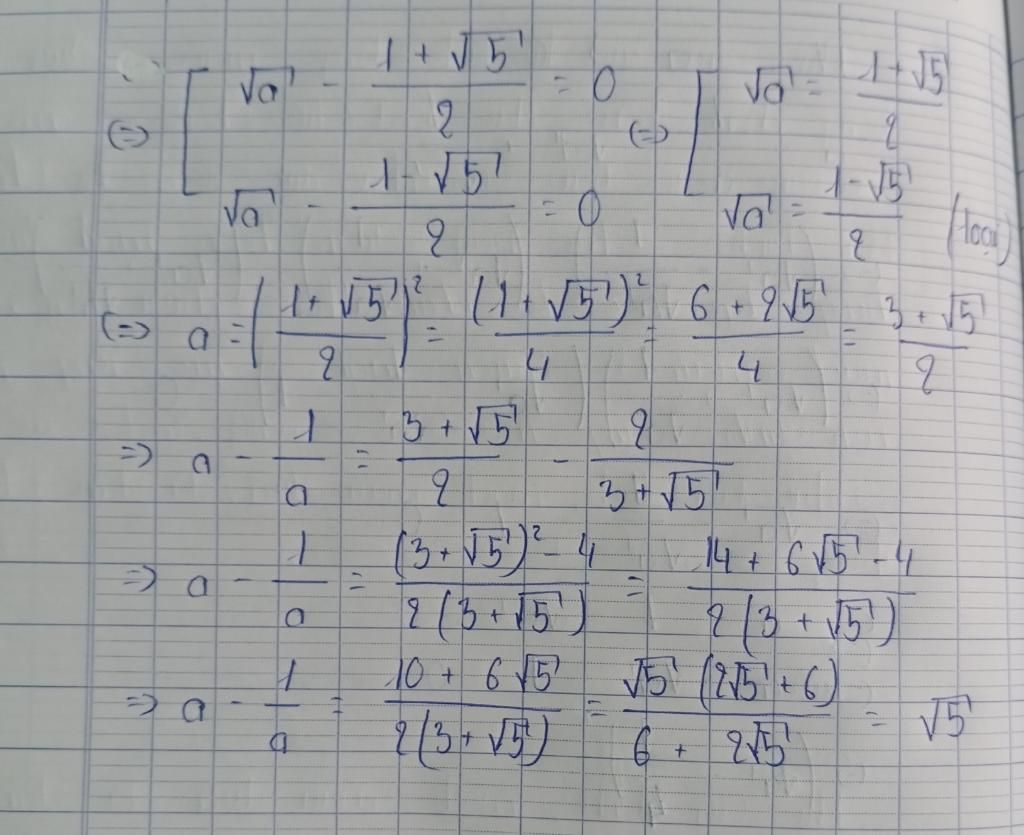 (=) [ √a - (1 + √5)/2 = 0 (=) [ √a = (1 + √5)/2
√a - (1 - √5)/2 = 0 √a = (1 - √5)/2 (loại)
(=) a = ((1 + √5)/2)² = (1 + √5)²/4 = (6 + 2√5)/4 = (3 + √5)/2
=) a - 1/a = (3 + √5)/2 - 2/(3 + √5)
=) a - 1/a = ((3 + √5)² - 4)/(2(3 + √5)) = (14 + 6√5 - 4)/(2(3 + √5))
=) a - 1/a = (10 + 6√5)/(2(3 + √5)) = √5(2√5 + 6)/(6 + 2√5) = √5